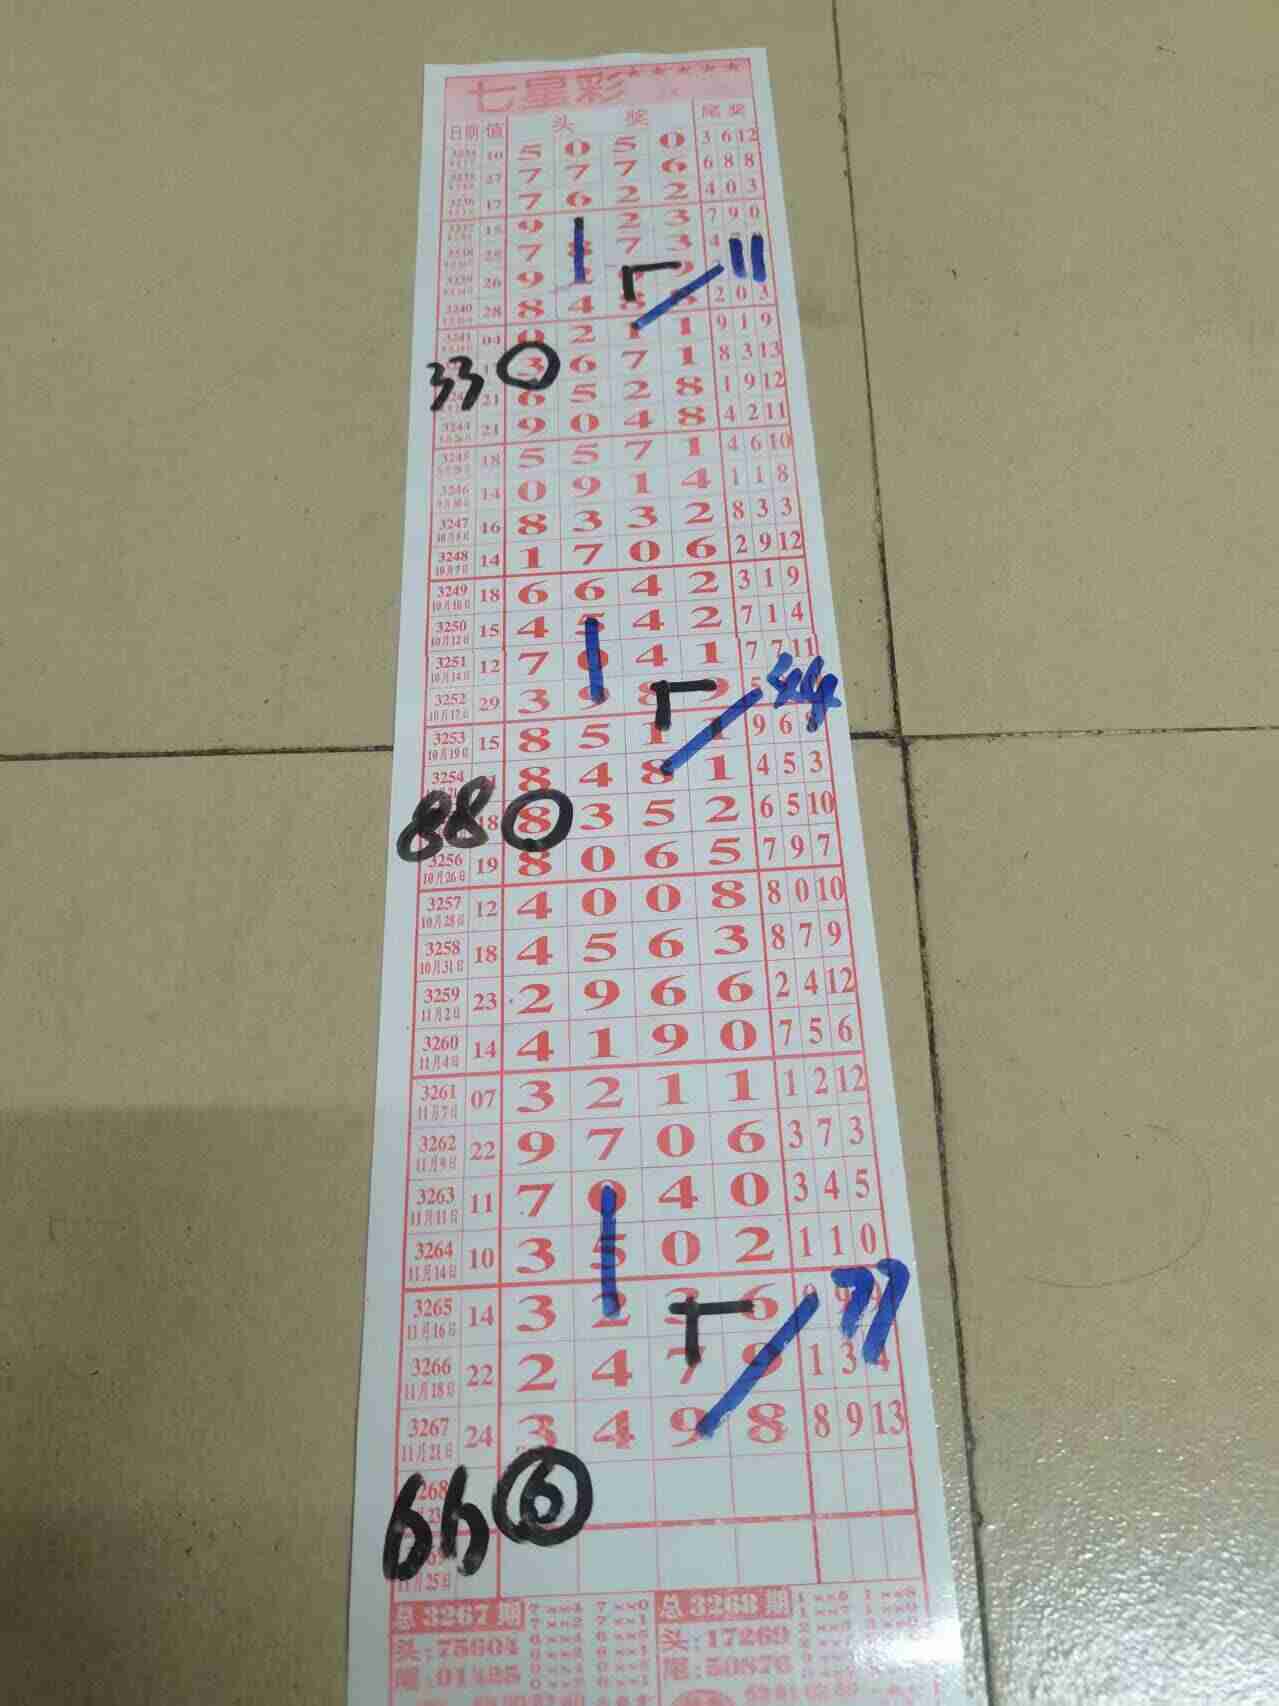 七星彩 ★★★★★
日期 值 头 奖 尾 奖
10 5 0 5 0 3 6 12
27 7 7 7 6 6 8 8
3236 17 7 6 2 2 4 0 3
15 9 2 3 7 9 0
7 8 7 3 4
11
3239 26 9 9
3240 28 8 4 8 2 0 3
3241 04 0 2 1 1 9 1 9
33 3 6 7 1 8 3 13
21 6 5 2 8 1 9 12
3244 21 9 0 4 8 4 2 11
3245 18 5 5 7 1 4 6 10
3246 14 0 9 1 4 1 1 8
3247 10月5日 16 8 3 3 2 8 3 3
3248 10月7日 14 1 7 0 6 2 9 12
3249 10月10日 18 6 6 4 2 3 1 9
3250 10月12日 15 4 5 4 2 7 1 4
3251 10月14日 12 7 0 4 1 7 7 11
3252 10月17日 29 3 9 8 9 5
44
3253 10月19日 15 8 5 1 1 9 6 8
3254 8 4 8 1 4 5 3
88 18 8 3 5 2 6 5 10
3256 10月26日 19 8 0 6 5 7 9 7
3257 10月28日 12 4 0 0 8 8 0 10
3258 10月31日 18 4 5 6 3 8 7 9
3259 11月2日 23 2 9 6 6 2 4 12
3260 11月4日 14 4 1 9 0 7 5 6
3261 11月7日 07 3 2 1 1 1 2 12
3262 11月9日 22 9 7 0 6 3 7 3
3263 11月11日 11 7 0 4 0 3 4 5
3264 11月14日 10 3 5 0 2 1 1 0
77
3265 11月16日 14 3 2 3 6 9 9
3266 11月18日 22 2 4 7 9 1 3 4
3267 11月21日 24 3 4 9 8 8 9 13
66 268 6
11月25日
总 3267 期 总 3268 期
头:75604 头:17269
尾:01425 尾:50876